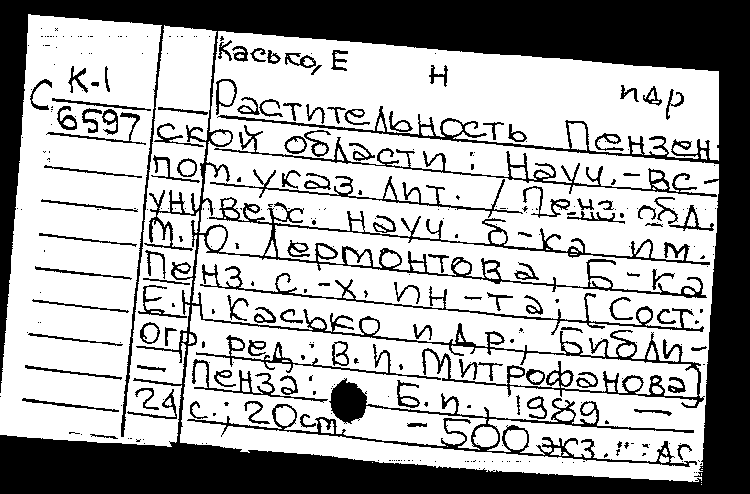 Касько, Е Н пдр
С К-1
6597
Растительность Пензен
ской области : Науч.-вс-
пом. указ. лит. / Пенз. обл.
универс. науч. б-ка им.
М.Ю. Лермонтова, Б-ка
Пенз. с.-х. ин-та; [Сост:
Е.Н. Касько и др.; Библи-
огр. ред.: В.п. Митрофанова]
— Пенза: Б.п., 1989. —
24 с.; 20 см. - 500 экз.